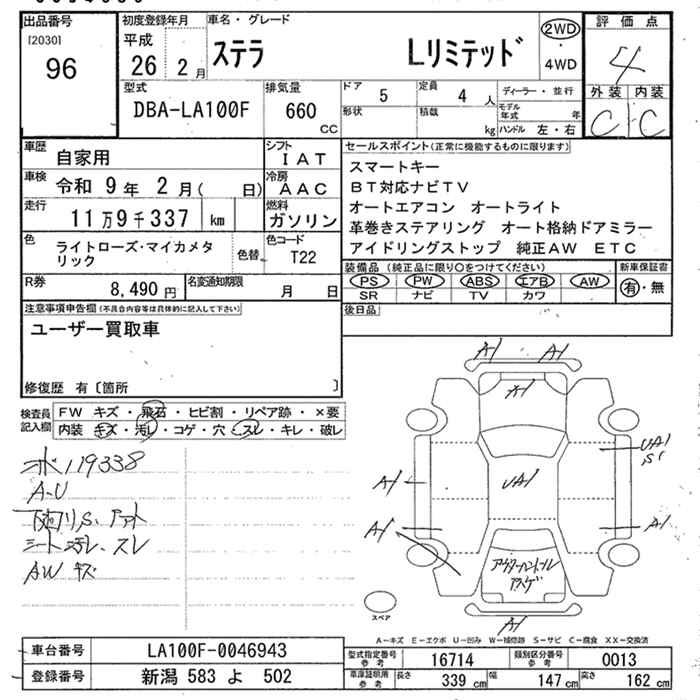 出品番号
[2030]
96
初度登録年月
平成
26年 2月
車名・グレード
ステラ Lリミテッド
2WD
・
4WD
評価点
4
外装 内装
C C
型式
DBA-LA100F
排気量
660
CC
ドア 5
定員 4 人
形状
積載 kg
ディーラー・並行
モデル年式 年
ハンドル 左・右
車歴
自家用
シフト
IAT
車検
令和 9年 2月( 日)
冷房
AAC
走行
11万9千337 km
燃料
ガソリン
色
ライトローズ・マイカメタ
リック
色替
色コード
T22
R券
8,490円
名変通知期限
月 日
セールスポイント(正常に機能するものに限ります)
スマートキー
BT対応ナビTV
オートエアコン オートライト
革巻きステアリング オート格納ドアミラー
アイドリングストップ 純正AW ETC
装備品(純正品に限り○をつけてください)
PS PW ABS エアB AW
SR ナビ TV カワ
新車保証書
有・無
後日品
注意事項申告欄(不具合内容等は具体的に記入して下さい)
ユーザー買取車
修復歴 有〔箇所 〕
検査員
記入欄
FW キズ・飛石・ヒビ割・リペア跡・×要
内装 キズ・汚レ・コゲ・穴・スレ・キレ・破レ
119338
A-U
シート汚レ、スレ
AW キズ
A1 A1
A1
UA1
S1
A1
UA1
A1
A1
A1
スペア
A-キズ E-エクボ U-凹み W-補修跡 S-サビ C-腐食 XX-交換済
車台番号
LA100F-0046943
登録番号
新潟 583 よ 502
型式指定番号
参考
16714
類別区分番号
参考
0013
車庫証明用
参考
長さ 339 cm
幅 147 cm
高さ 162 cm